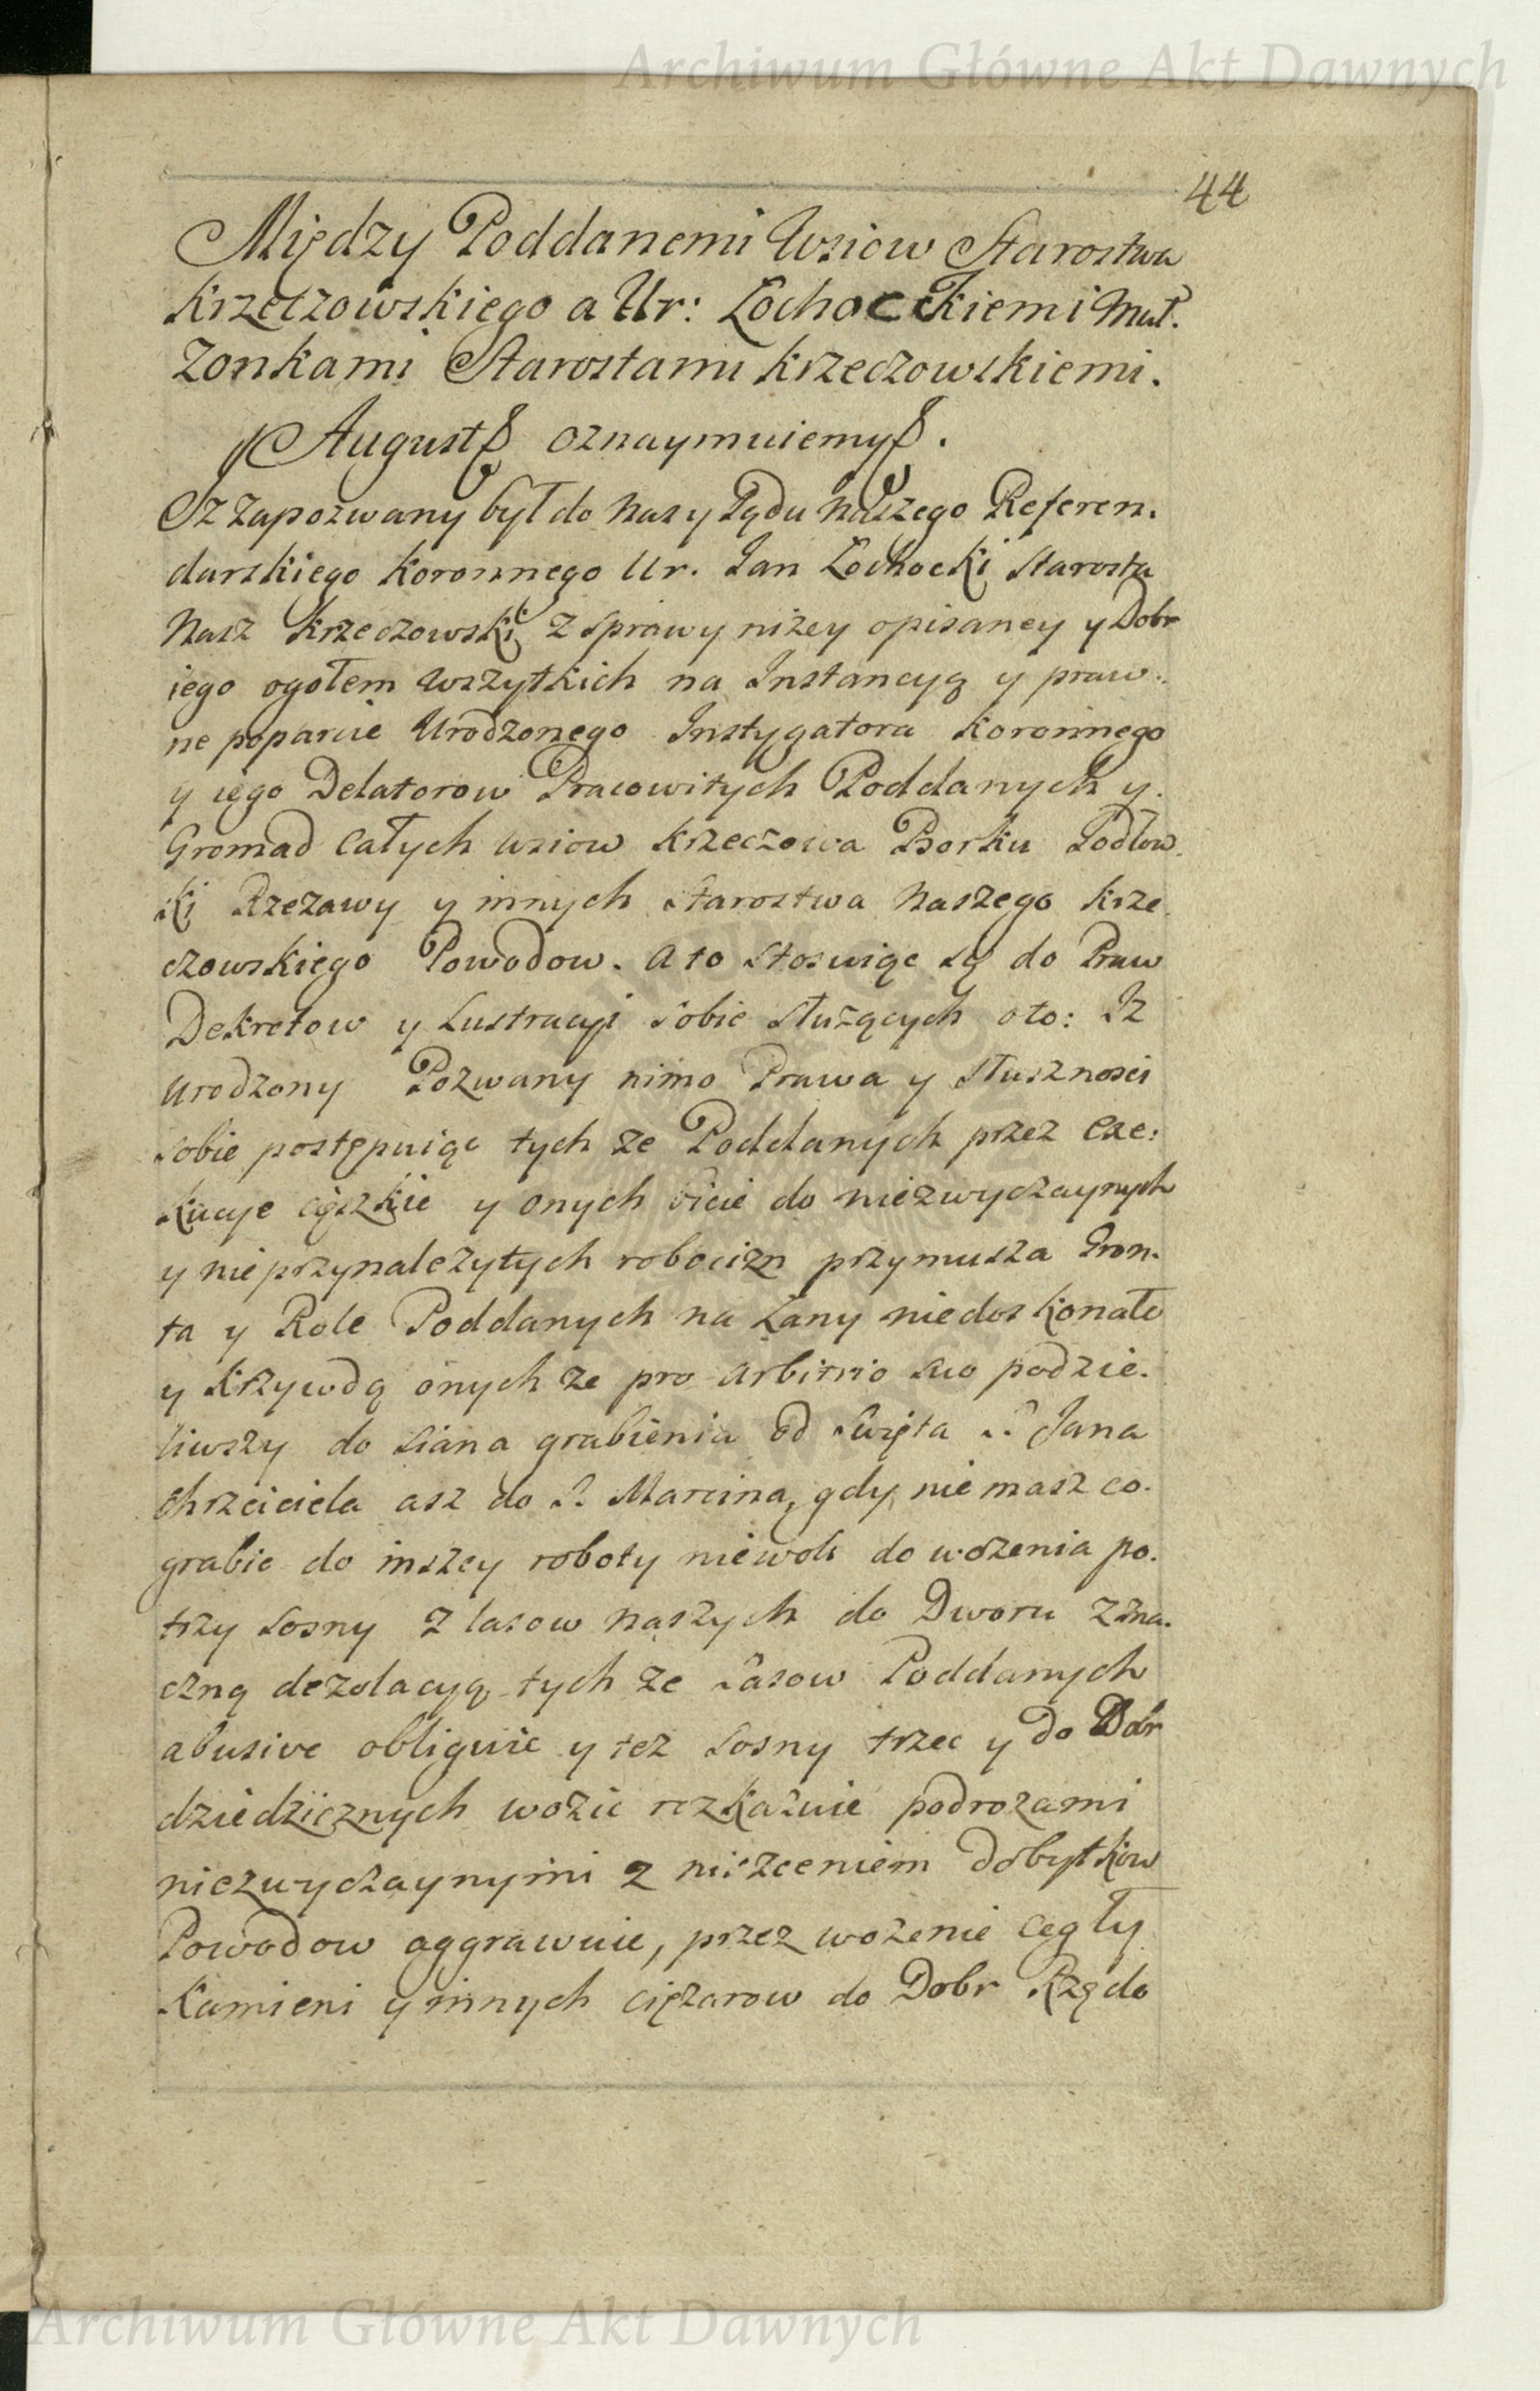 Archiwum Główne Akt Dawnych
44
Między Poddanemi Wsiow Starostwa
Krzeczowskiego a Ur: Łochockiemi Mał.
żonkami Starostami Krzeczowskiemi.
August oznaymuiemy.
Iż zapozwany był do Nas y Sądu Naszego Referen.
darskiego Koronnego Ur. Jan Łochocki Starosta
Nasz Krzeczowski z sprawy niżey opisaney y Dobr
iego ogołem wszytkich na Instancyą y praw.
ne poparcie Urodzonego Instygatora Koronnego
y iego Delatorow Pracowitych Poddanych y
Gromad całych wsiow Krzeczowa Borku Jodłow.
ki Rzezawy y innych Starostwa Naszego Krze.
czowskiego Powodow. A to stosuiąc się do Praw
Dekretow y Lustracyi sobie służących oto: Iż
Urodzony Pozwany nimo Prawa y słusznosci
sobie postępuiąc tych że Poddanych przez exe:
kucye cięszkie y onych bicie do niezwyczaynych
y nieprzynależytych robocizn przymusza Gron.
ta y Role Poddanych na Łany niedoskonałe
y krzywdą onych że pro arbitrio suo podzie.
liwszy do siana grabienia od Swięta S. Jana
Chrzciciela asz do S. Marcina, gdy nie masz co
grabic do inszey roboty niewoli do wożenia po
trzy sosny z lasow Naszych do Dworu z zna.
czną dezolacyą tych że Lasow Poddanych
abusive obliguie y też sosny trzec y do Dobr
dziedzicznych wozic rozkazuie podrożami
niezwyczaynymi z niszczeniem dobytkow
Powodow aggrawuie, przez wożenie cegły
Kamieni y innych ciężarow do Dobr Rzędo
Archiwum Główne Akt Dawnych